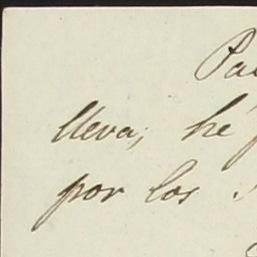 Pa
lleva, he
por los